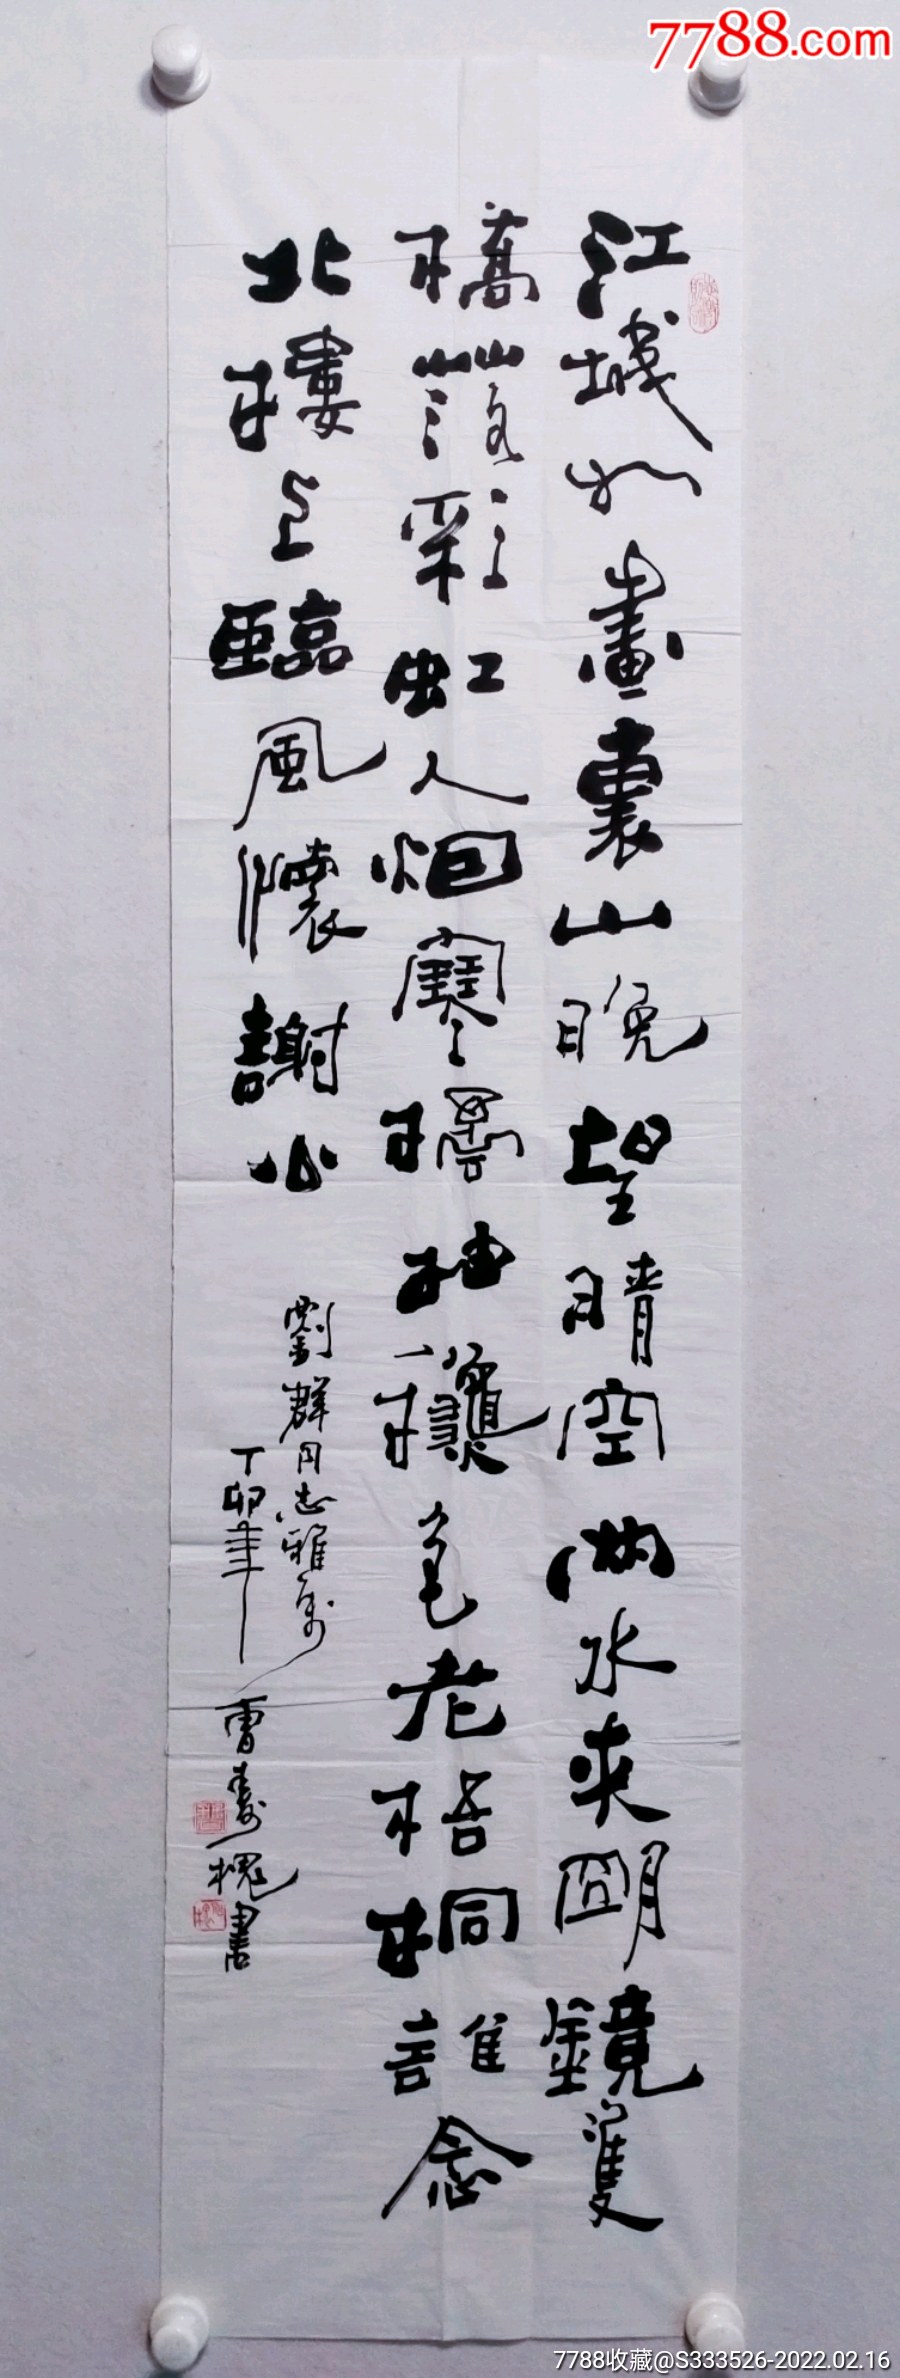 7788.com
江城如畫裏山晚望晴空兩水夾明鏡雙
橋落彩虹人烟寒橘柚秋色老梧桐誰念
北樓上臨風懷謝公
劉群同志雅屬
丁卯年曹壽槐書
7788收藏@S333526-2022.02.16